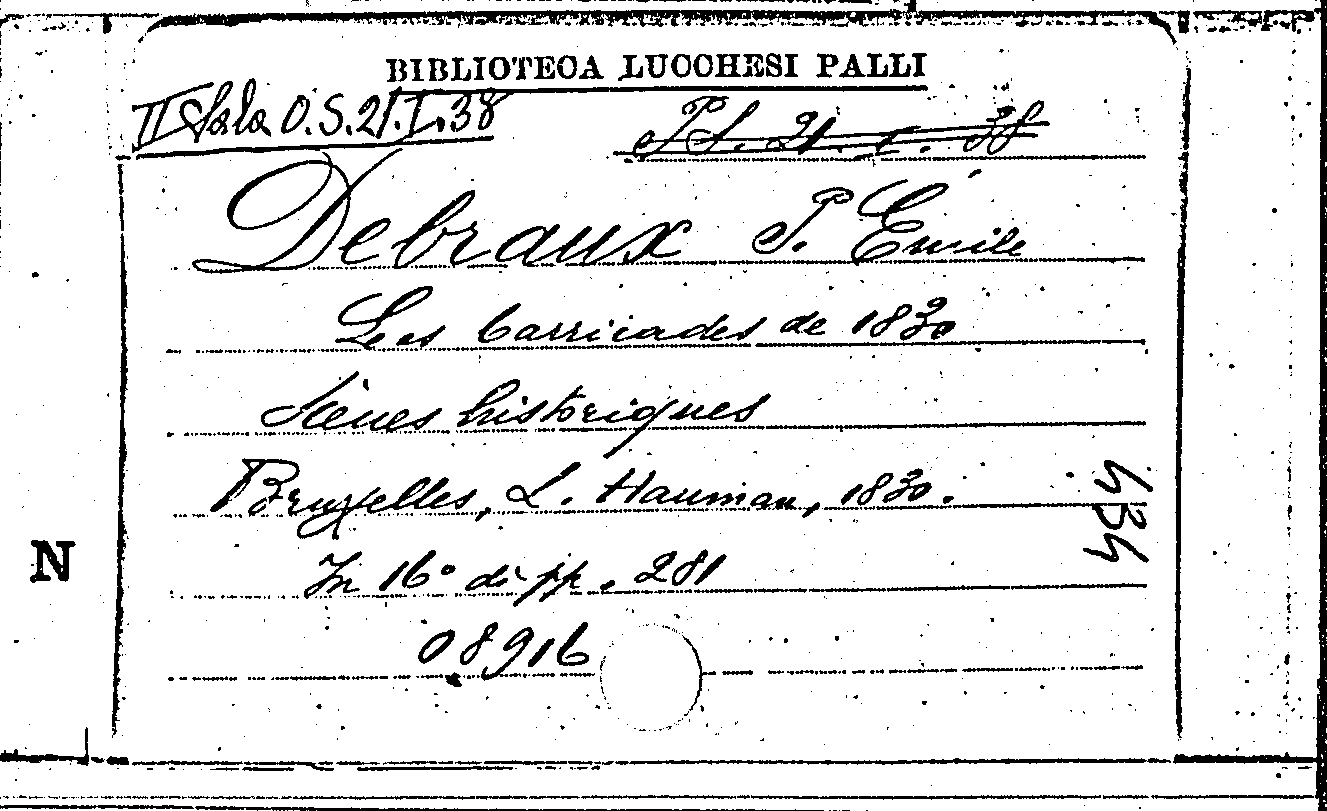 BIBLIOTECA LUCCHESI PALLI
II Sala O.S.21.I.38
P.S. 21. I. 38
Debraux P. Émile
Les barricades de 1830
Scènes historiques
Bruxelles, L. Hauman, 1830.
In 16° di pp. 281
08916
N